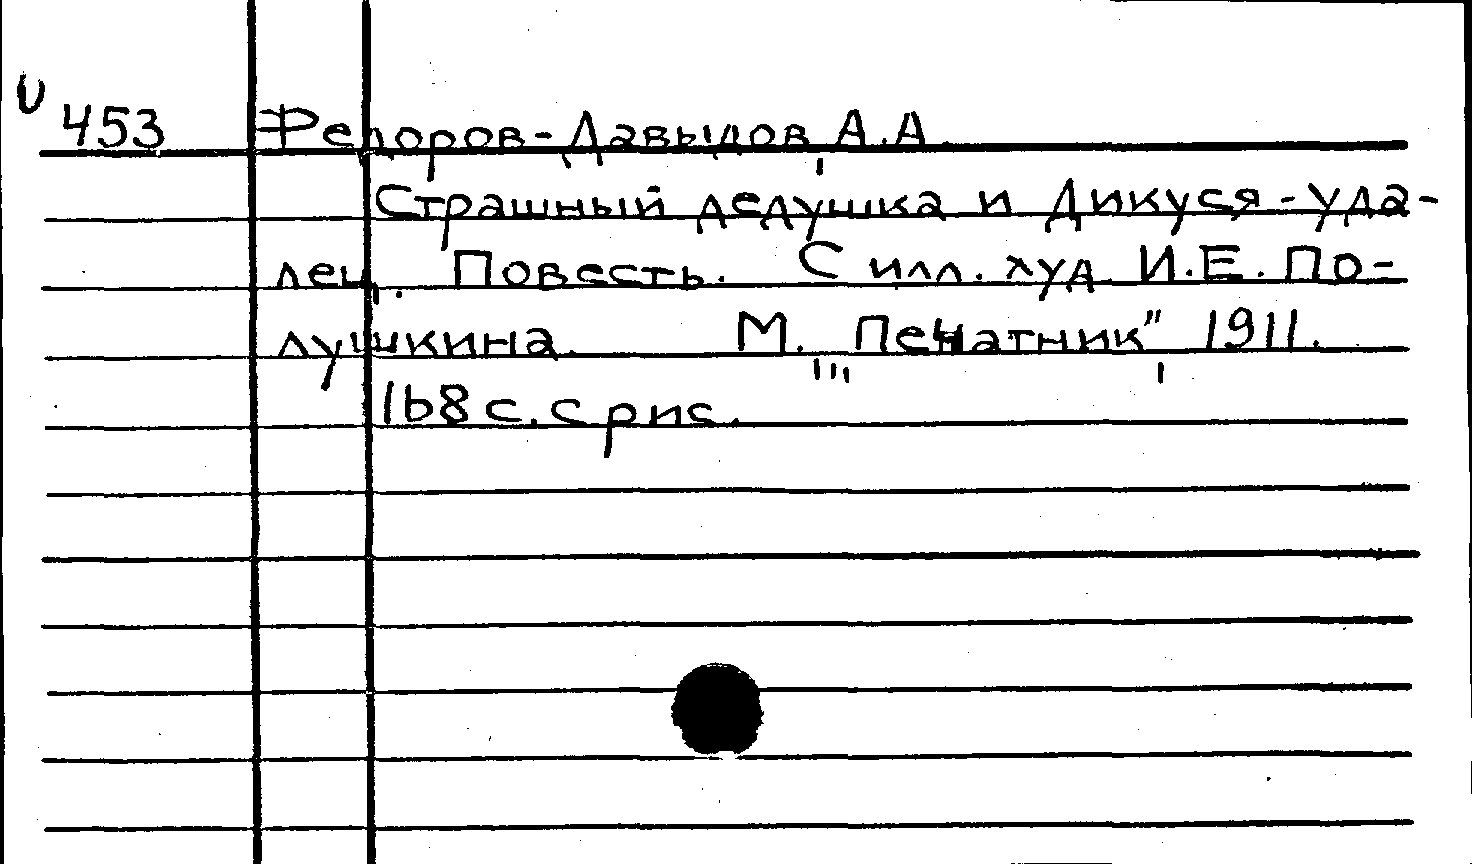 U 453 Федоров-Давыдов, А.А.
Страшный дедушка и Дикуся-уда-
лец. Повесть. С илл. худ. И.Е. По-
лушкина. М. "Печатник", 1911.
168 с. с рис.